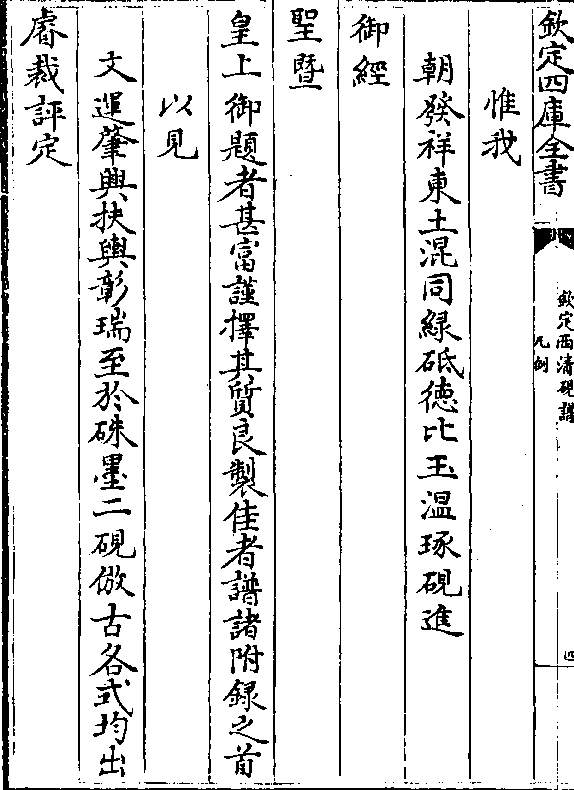 欽定四庫全書
欽定西清硯譜
凡例
四
惟我
朝發祥東土混同綠砥德比玉温琢硯進
御經
聖暨
皇上御題者甚富謹擇其質良製佳者譜諸附録之首
以見
文運肇興扶輿彰瑞至於硃墨二硯倣古各式均出
睿裁評定